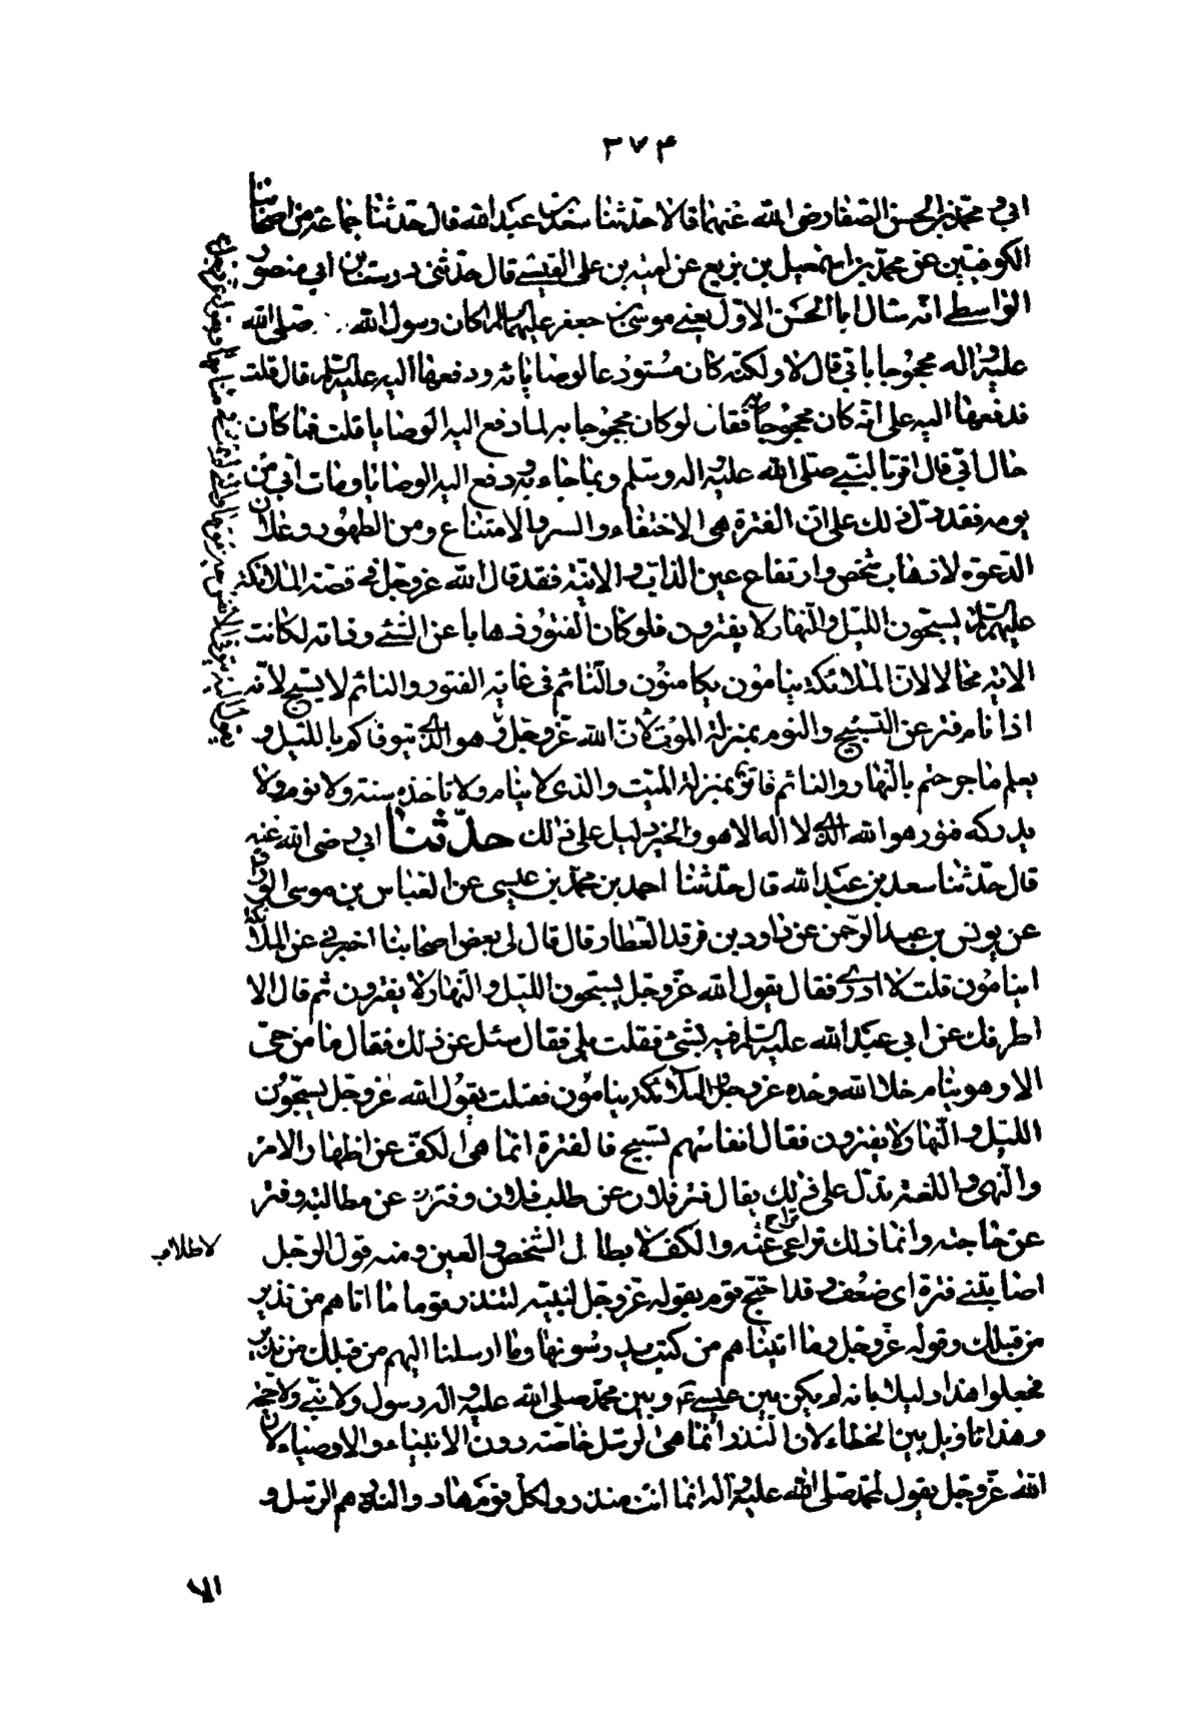 ٢٧۴
ابي و محمد بن الحسن الصفار رضي الله عنهما قالا حدثنا سعد بن عبد الله قال حدثنا جماعة من اصحابنا
الكوفيين عن محمد بن اسمعيل بن بزيع عن امية بن علي القيسي قال حدثني درست بن ابي منصور
الواسطي انه سال ابا الحسن الاول يعني موسى بن جعفر عليهما السلم اكان رسول الله صلى الله
عليه و اله محجوجا بابي قال لا و لكنه كان مستودعا لوصاياه و دفعها اليه عليه السلم قال قلت
فدفعها اليه على انه كان محجوجا به فقال لو كان محجوجا به لما دفع اليه الوصايا قلت فما كان
حال ابي قال اقر بالنبي صلى الله عليه و اله و سلم و بما جاء به و دفع اليه الوصايا و مات ابي من
يومه فقد دل ذلك على ان الفترة هي الاختفاء و السر و الامتناع و من الظهور و اعلان
الدعوة لا ذهاب شخص و ارتفاع عين الذات و الانية فقد قال الله عز و جل في قصة الملائكة
عليهم السلم يسبحون الليل و النهار لا يفترون فلو كان الفتور ذهابا عن الشئ و ذاته لكانت
الاية محالا لان الملائكة ينامون و النائم في غاية الفتور و النائم لا يسبح لانه
اذا نام فتر عن التسبيح و النوم بمنزلة الموت لان الله عز و جل و هو الذي يتوفاكم بالليل و
يعلم ما جرحتم بالنهار و النائم فاتر بمنزلة الميت و الذي لا ينام و لا تاخذه سنة و لا نوم و لا
يدركه فتور هو الله الذي لا اله الا هو و الخبر دليل على ذلك حدثنا ابي رضي الله عنه
قال حدثنا سعد بن عبد الله قال حدثنا احمد بن محمد بن عيسى عن العباس بن موسى الوراق
عن يونس بن عبد الرحمن عن داود بن فرقد العطار قال قال لي بعض اصحابنا اخبرني عن الملائكة
اينامون قلت لا ادري فقال يقول الله عز و جل يسبحون الليل و النهار لا يفترون ثم قال الا
اطرفك عن ابي عبد الله عليه السلم فيه بشئ فقلت بلى فقال سئل عن ذلك فقال ما من حي
الا و هو ينام خلا الله وحده عز و جل و الملائكة ينامون فقلت يقول الله عز و جل يسبحون
الليل و النهار لا يفترون فقال انفاسهم تسبيح فالفترة انما هي الكف عن اظهار الامر
و النهي و اللغة تدل على ذلك يقال فتر فلان عن طلب فلان و فتر عن مطالبته و فتر
عن حاجته و انما ذلك تراخي عنه و الكف لا بطال الشخص و العين و منه قول الرجل
تراخ
لا بطلان
اصابتني فترة اي ضعف و قد احتج قوم بقوله عز و جل لنبيه لتنذر قوما ما اتاهم من نذير
من قبلك و قوله عز و جل و ما اتيناهم من كتب يدرسونها و ما ارسلنا اليهم من قبلك من نذير
فجعلوا هذا دليلا بانه لم يكن بين عيسى ع و بين محمد صلى الله عليه و اله رسول و لا نبي و لا حجة
و هذا تاويل بين الخطاء لان النذر انما هي الرسل خاصة دون الانبياء و الاوصياء لان
الله عز و جل يقول لمحمد صلى الله عليه و اله انما انت منذر و لكل قوم هاد و النذر هم الرسل و
الا